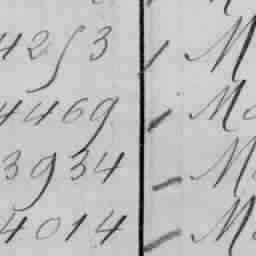 4253 M
4469 Ma
3934 M
4014 Ma